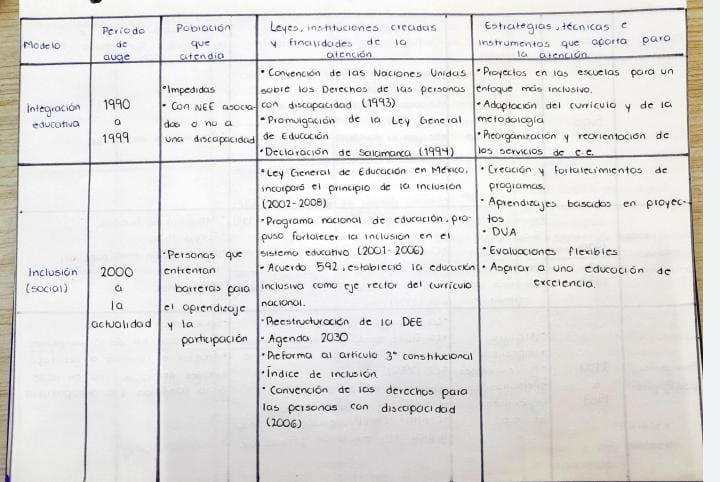 Modelo
Periodo
de
auge
Población
que
atendía
Leyes, instituciones creadas
y finalidades de la
atención
Estrategias, técnicas e
instrumentos que aporta para
la atención
Integración
educativa
1990
a
1999
• Impedidas
• Con NEE asocia-
das o no a
una discapacidad
• Convención de las Naciones Unidas
sobre los Derechos de las personas
con discapacidad (1993)
• Promulgación de la Ley General
de Educación
• Declaración de Salamanca (1994)
• Proyectos en las escuelas para un
enfoque más inclusivo.
• Adaptación del currículo y de la
metodología
• Reorganización y reorientación de
los servicios de e.e.
Inclusión
(social)
2000
a
la
actualidad
• Personas que
enfrentan
barreras para
el aprendizaje
y la
participación
• Ley General de Educación en México,
incorporó el principio de la inclusión
(2002-2008)
• Programa nacional de educación, pro-
puso fortalecer la inclusión en el
sistema educativo (2001-2006)
• Acuerdo 592, estableció la educación
inclusiva como eje rector del currículo
nacional.
• Reestructuración de la DEE
• Agenda 2030
• Reforma al artículo 3° constitucional
• Índice de inclusión
• Convención de los derechos para
las personas con discapacidad
(2006)
• Creación y fortalecimientos de
programas.
• Aprendizajes basados en proyec-
tos
• DUA
• Evaluaciones flexibles
• Aspirar a una educación de
excelencia.